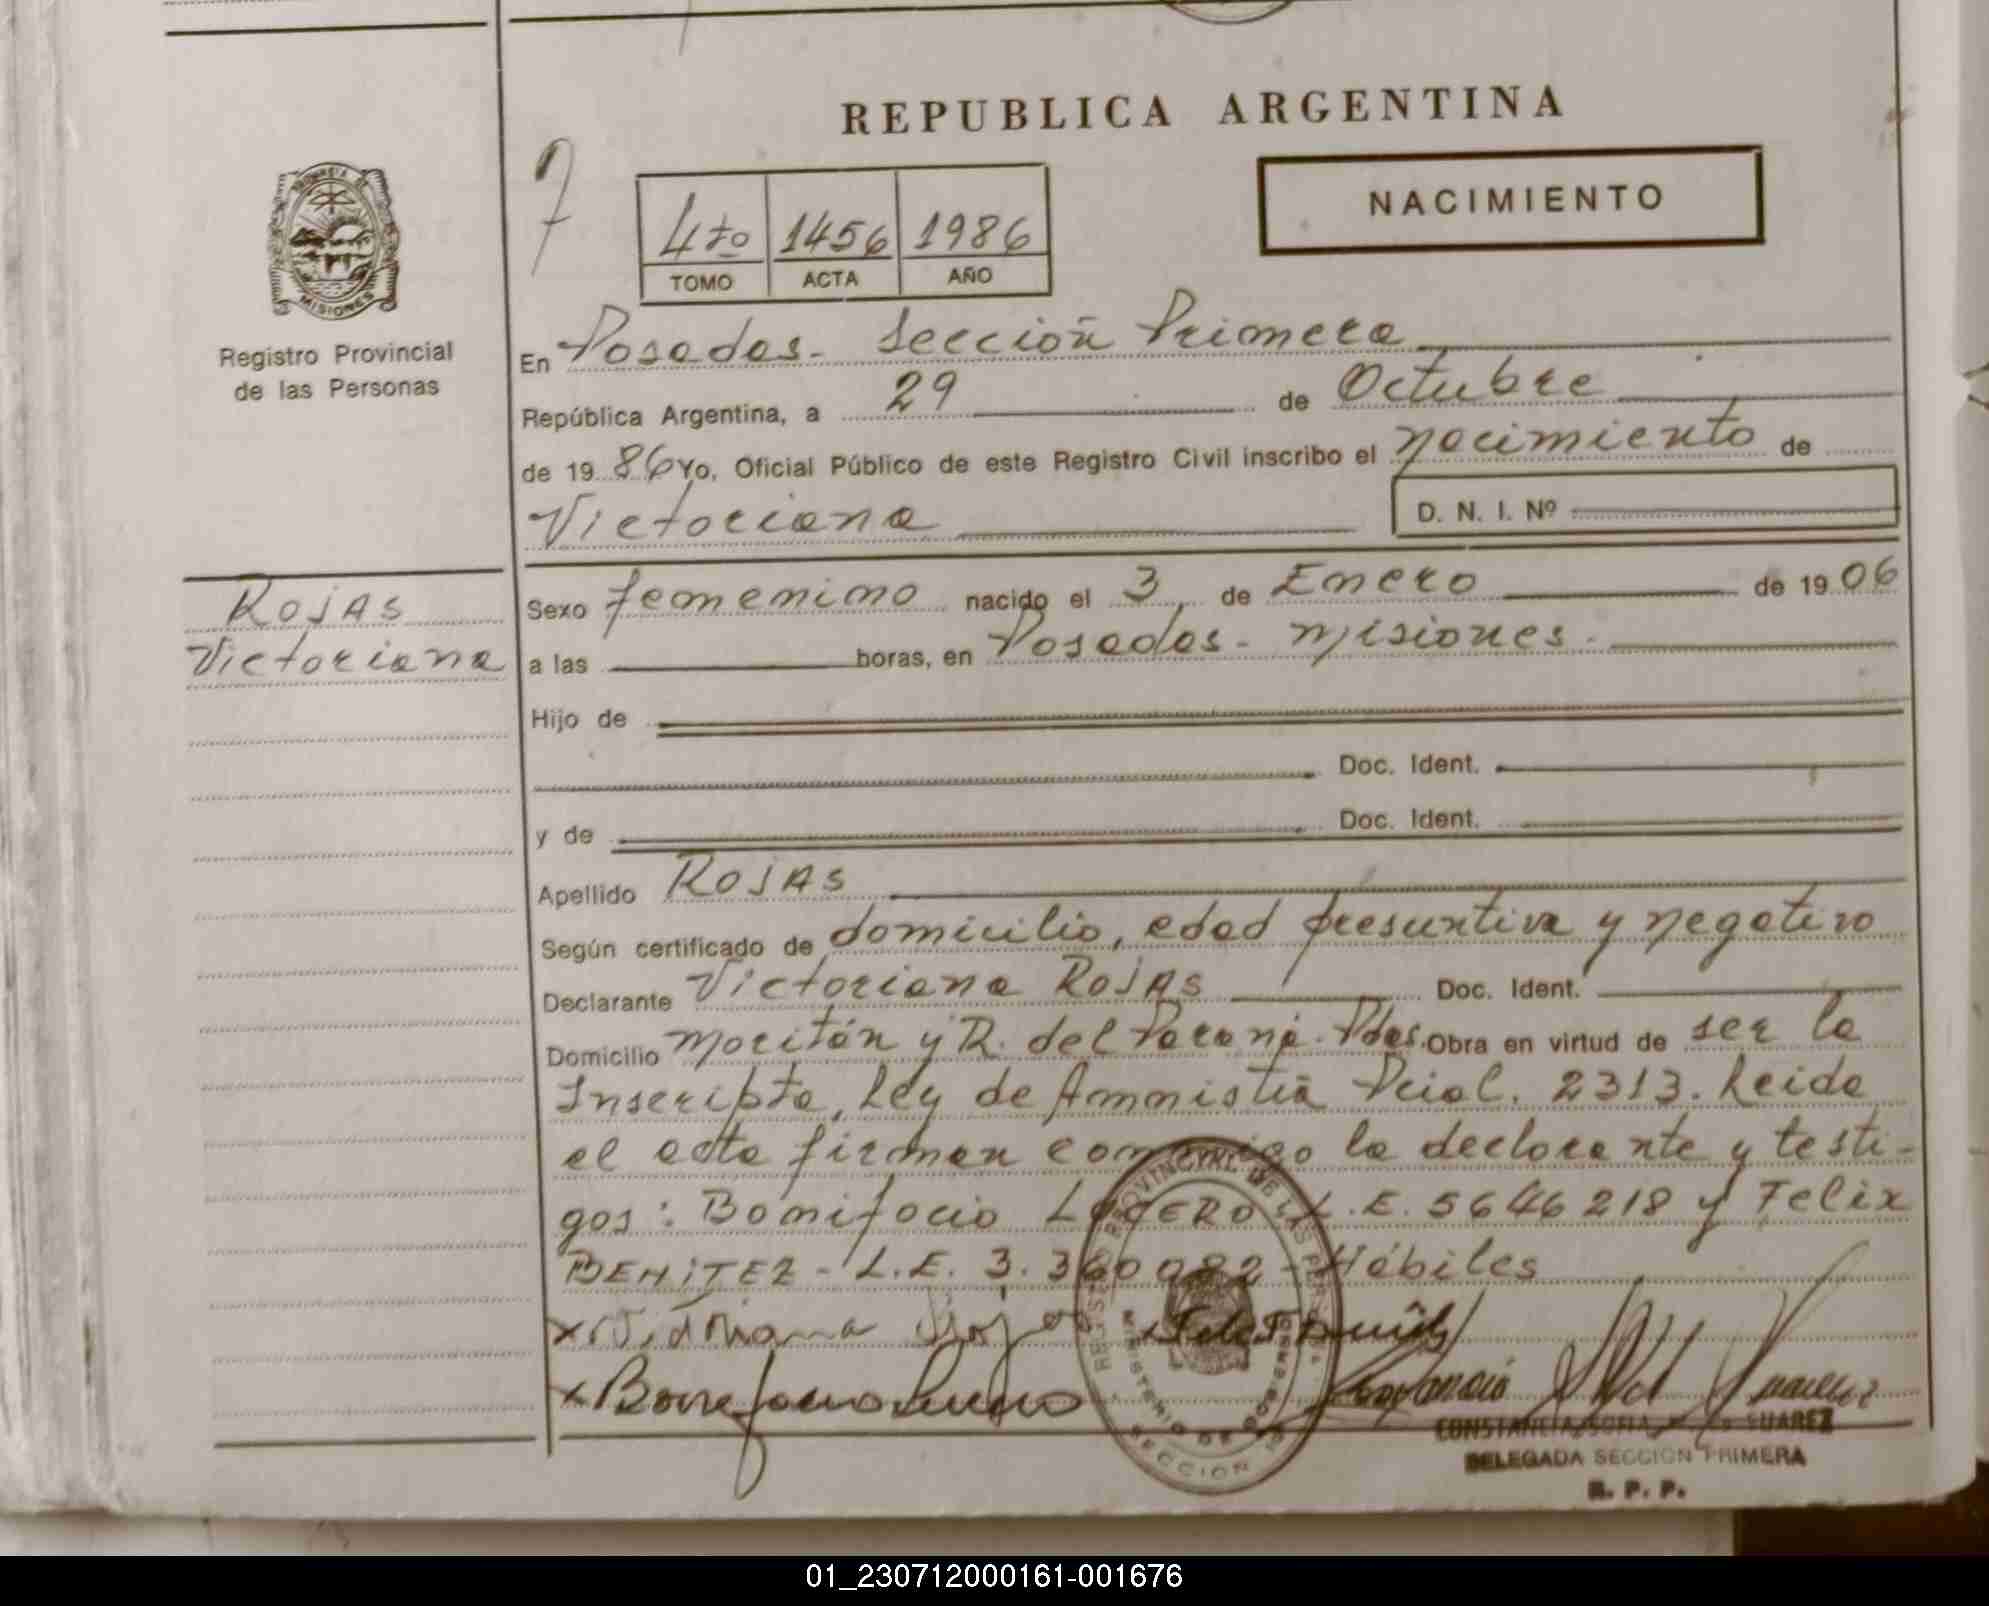 REPUBLICA ARGENTINA
PROVINCIA DE
MISIONES
Registro Provincial
de las Personas
4to 1456 1986
TOMO ACTA AÑO
NACIMIENTO
En Posadas - Sección Primera
República Argentina, a 29 de Octubre
de 1986 Yo, Oficial Público de este Registro Civil inscribo el nacimiento de
Victoriana
D. N. I. Nº
Rojas
Victoriana
Sexo femenino nacido el 3 de Enero de 1906
a las horas, en Posadas - Misiones.
Hijo de
Doc. Ident.
y de Doc. Ident.
Apellido Rojas
Según certificado de domicilio, edad presuntiva y negativo
Declarante Victoriana Rojas Doc. Ident.
Domicilio y R. del Paraná. Pdas. Obra en virtud de ser la
Inscripta, Ley de Amnistía Pcial. 2313. Leida
el acta firman conmigo la declarante y testi-
gos: Bonifacio LUCERO L.E. 5646218 y Felix
BENITEZ - L.E. 3.360082 - Hábiles
CONSTANCIA SOFIA SUAREZ
DELEGADA SECCION PRIMERA
R. P. P.
01_230712000161-001676